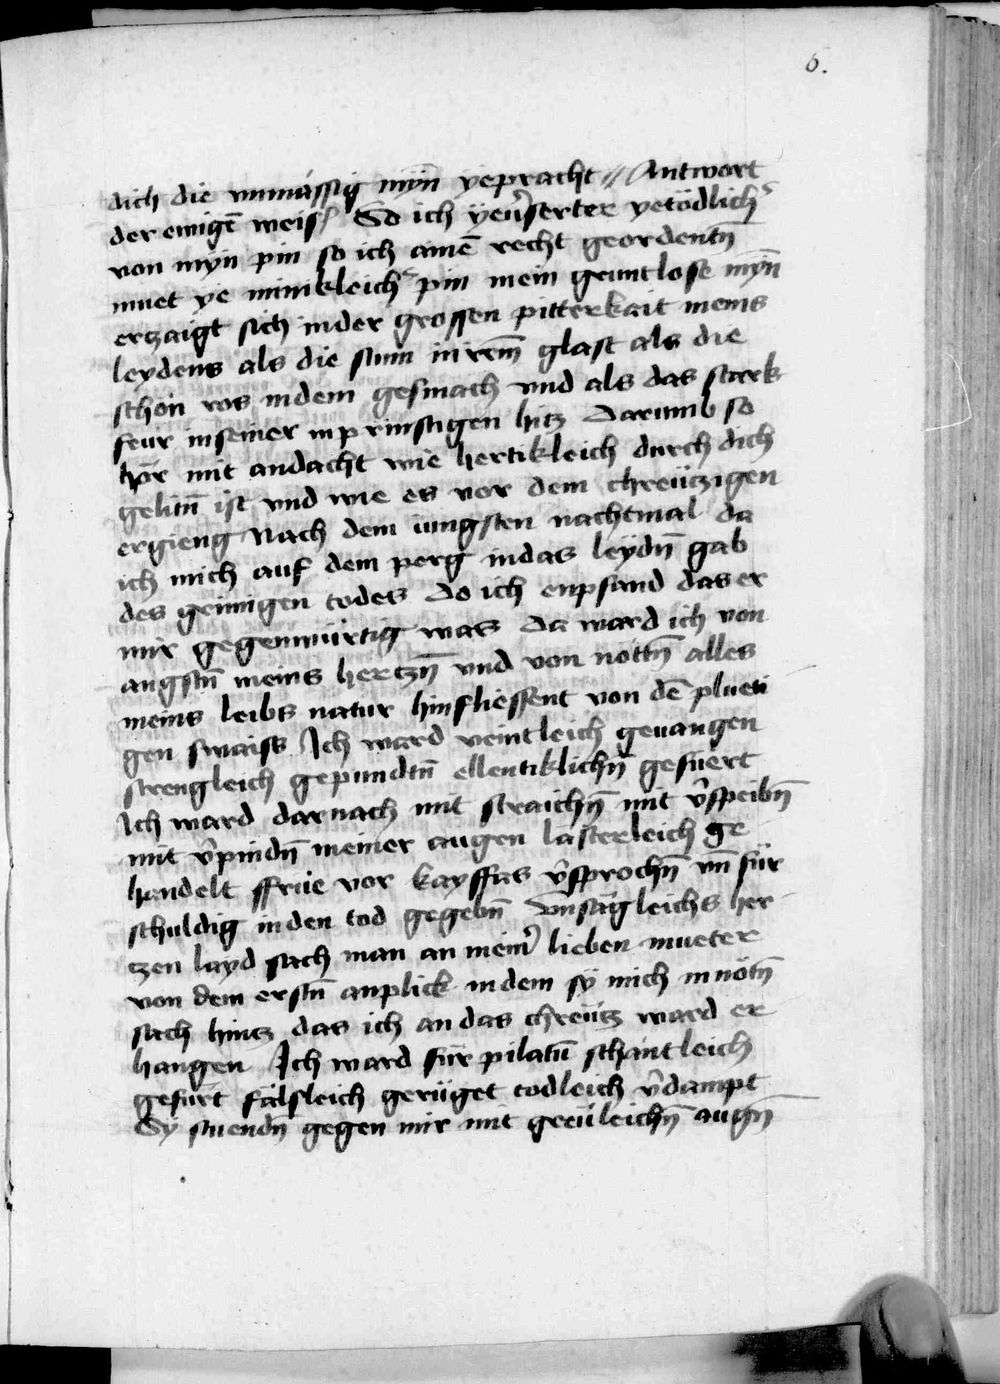 6.
dich die unmässig myn̄ yepracht // Antwort
der ewigē weis / So ich yeu̾serter yetödlich͛
von myn pin so ich ainē recht geordentn̄
muet ye minikleich͛ pin mein gruntlose myn̄
erzaigt sich inder grossen pitterkait meins
leydens als die sunn in irem̄ glast als die
schön ros indem gesmach vnd als das stark
feur inseiner inprinstigen hitz Darumb so
hör mit andacht wie hertikleich durch dich
gelitn̄ ist vnd wie es vor dem chreützigen
ergieng Nach dem iungsten nachtmal da
ich mich auf dem perg indas leydn̄ gab
des grimigen todes Do ich enpfand das er
mir gegenwürtig was Da ward ich von
angstn̄ meins hertzn̄ vnd von nöttn̄ alles
meins leibs natur hinfliessent von dē plueti
gen swaiss Ich ward veintleich geuangen
strengleich gepundtn̄ ellentiklichn̄ gefuert
Ich ward darnach mit straichn̄ mit v̾speibn̄
mit v̾pindn̄ meiner augen lasterleich ge
handelt ffrüe vor kayffas v̾sprochn̄ vn̄ für
schuldig inden tod gegebn̄ Vnsägleichs her
tzen layd sach man an mein̾ lieben mueter
von dem erstn̄ anplick indem sy mich in nötn̄
sach hintz das ich an das chreütz ward er
hangen Ich ward für pilatū schantleich
gefürt fälsleich gerüget todleich v̾dampt
Sy stuendn̄ gegen mir mit greüleichn̄ augn̄